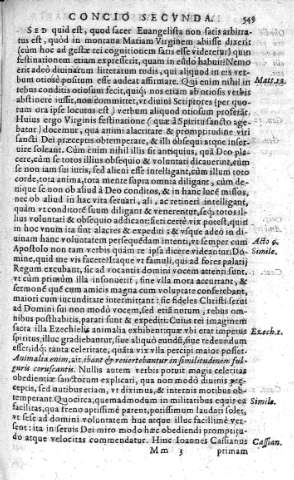 CONCIO SECVNDA. 549
SED quid est, quod sacer Euangelista non satis arbitra-
tus est, quòd in montana Mariam Virginem abiisse dixerit
(cùm hoc ad gestæ rei cognitionem satis esse videretur) quin
festinationem etiam expresserit, quam in eisdo habuit? Nemo
erit adeò diuinarum litterarum rudis, qui aliquid in eis ver-
bum otiosè positum esse audeat affirmare. Qui enim nihil in Matt.12.
rebus conditis otiosum fecit, quíq; nos etiam ab otiosis verbis
abstinere iussit, non committet, vt diuini Scriptores (per quo-
rum ora ipse locutus est) verbum aliquod otiosum proferāt.
Huius ergo Virginis festinatione (quæ à Spiritu sancto age-
batur) docemur, qua animi alacritate & promptitudine viri
sancti Dei præceptis obtemperent, & illi obsequi atque inser-
uire soleant. Cùm enim nihil illis sit antiquius, quā Deo pla-
cere, cùm se totos illius obsequio & voluntati dicauerint, cùm
se non iam sui iuris, sed alieni esse intelligant, cùm illum toto
corde, tota anima, tota mente supra omnia diligant, cùm de-
nique se non ob aliud à Deo conditos, & in hanc lucē missos,
nec ob aliud in hac vita seruari, ali, ac retineri intelligant,
quàm vt conditorē suum diligant & venerentur, seq; totos il-
lius voluntati & obsequio addicant: certè fieri non potest, quin
in hoc vnum ita sint alacres & expediti: & vsque adeò in di-
uinam hanc voluntatem persequēdam intenti, vt semper cum
Apostolo non tam verbis quàm re ipsa dicere videantur: Do- Acto 9.
mine, quid me vis facere? Itaque vt famuli, qui ad fores palatij Simile.
Regum excubant, sic ad vocantis domini vocem attenti sunt,
vt cùm primùm illa insonuerit, sine vlla mora accurrant, &
sermonē quē cum amicis magna cum voluptate conserebant,
maiori cum iucunditate intermittant: sic fideles Christi serui
ad Domini sui non modò vocem, sed etiā nutum, rebus om-
nibus posthabitis, parati sunt & expediti. Cuius rei imaginem
sacra illa Ezechielis animalia exhibent: quæ vbi erat impetus Ezech.1.
spiritus, illuc gradiebantur, siue aliquò eundū, siue redeundum
esset, idq; tanta celeritate, quāta vix vlla percipi maior posset.
Animalia enim, ait, ibant & reuertebantur in similitudinem ful-
guris coruscantis. Nullis autem verbis potuit magis celeritas
obedientiæ sanctorum explicari, qua non modò diuinis præ-
ceptis, sed nutibus etiam, vt diximus, & internis motibus ob-
temperant. Quocirca, quemadmodum in militaribus equis ea Simile.
facilitas, qua freno aptissimè parent, potissimùm laudari solet,
vt sese ad domini voluntatem huc atque illuc facillimè ver-
sent: ita in seruis Dei miro modo hæc obediendi promptitu-
do atque velocitas commendatur. Hinc Ioannes Cassianus Cassian.
M m 3 primam